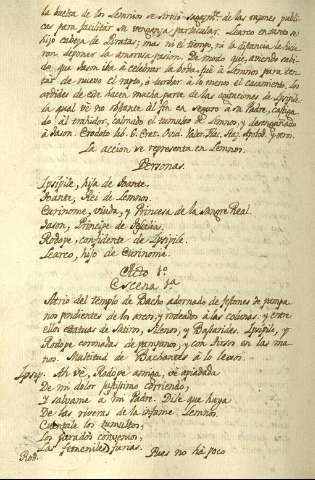 la buelta de los Lemnios se sirvió sagazmte. de las razones publi-
cas para facilitar su venganza particular. Learco en tanto se
hizo cabeza de Piratas; mas ni el tiempo, ni la distancia le hicie-
ron deponer la amorosa pasion. De modo que, aviendo sabi-
do, que Jason iba à celebrar la boda, fuè à Lemnos para ten-
tar de nuevo el rapto, ò turbar à lo menos el casamiento. Los
ardides de este hacen mucha parte de las agitaciones de Ipsipile
la qual vè no obstante al fin en seguro à su Padre, castiga-
do al traidor, calmado el tumulto de Lemnos, y desengañado
à Jason. Erodoto lib. 6. Erat. Ovid. Valer. Flac. Staz. Apolod. y otros.
La accion se representa en Lemnos.
Personas.
Ipsipile, hija de Toante.
Toante, Rei de Lemnos.
Eurinome, viuda, y Princesa de la Sangre Real.
Jason, Principe de Tesalia.
Rodope, confidente de Ipsipile.
Learco, hijo de Eurinome.
Acto 1º.
Escena 1ª.
Atrio del templo de Bacho adornado de festones de pampa-
nos pendientes de los arcos, y rodeados à las colunas. y entre
ellos estatuas de Satiros, Silenos, y Basarides. Ipsipile, y
Rodope coronadas de pampanos, y con tirsos en las ma-
nos. Multitud de Bachantes à lo lexos.
Ipsip. Ah vè, Rodope amiga, vè apiadada
De mi dolor justisimo corriendo,
I salvame à mi Padre. Dile que huya
De las riveras de la infame Lemnos.
Cuentale los tumultos,
los jurados convenios,
Las femeniles furias.
Rod. Pues no ha poco